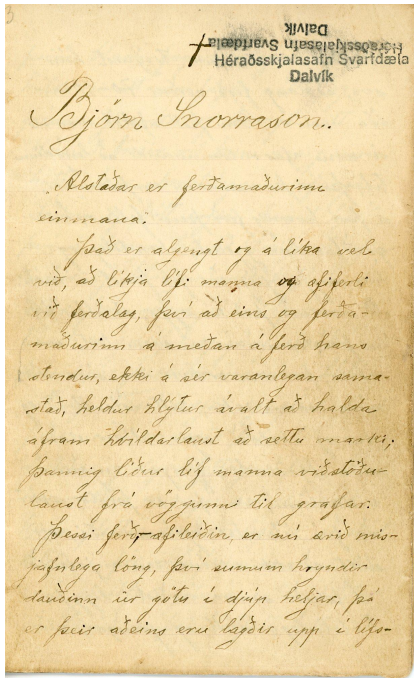 Héraðsskjalasafn Svarfdæla
Dalvík
Héraðsskjalasafn Svarfdæla
Dalvík
Björn Snorrason.
„Alstaðar er ferðamaðurinn
einmana“.
Það er algengt og á líka vel
við, að líkja lífi manna og æfiferli
við ferðalag, því að eins og ferða-
maðurinn á meðan á ferð hans
stendur, ekki á sér varanlegan sama-
stað, heldur hlýtur ávalt að halda
áfram hvíldarlaust að settu marki;
þannig líður líf manna viðstöðu-
laust frá vöggunni til grafar.
Þessi ferð, æfileiðin, er nú ærið mis-
jafnlega löng, því sumum hryndir
dauðinn úr götu í djúp heljar, þá
er þeir aðeins eru lagðir upp í lífs-